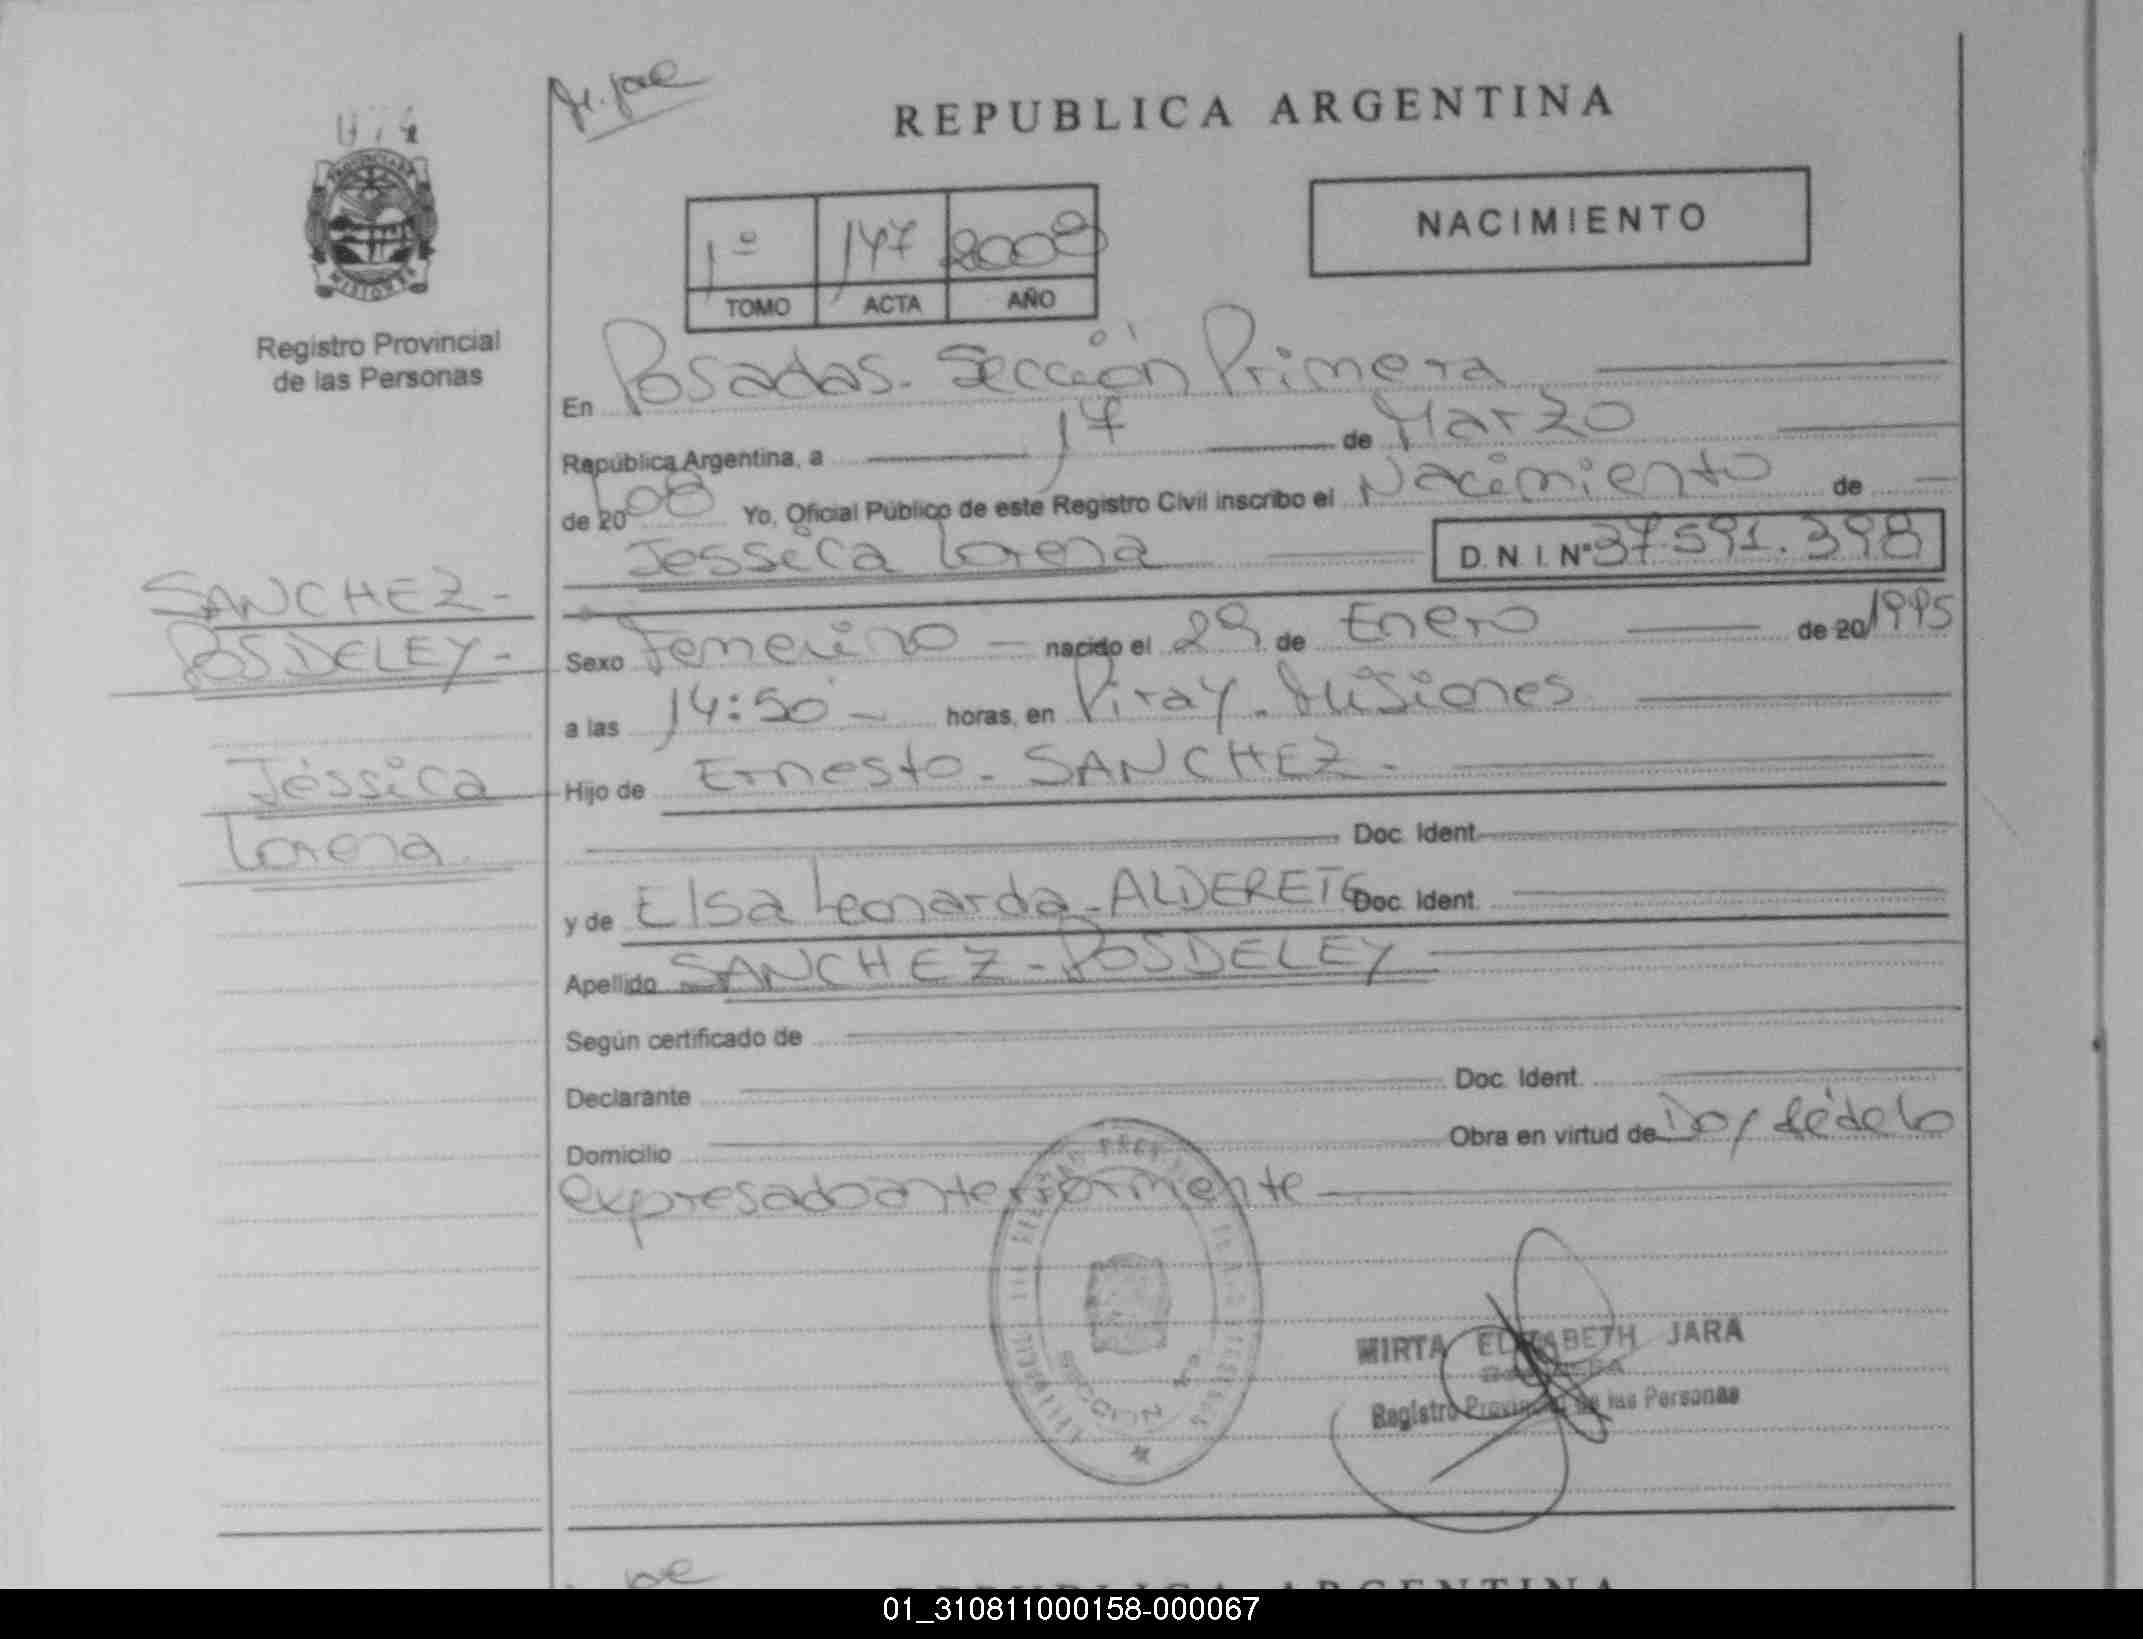 REPUBLICA ARGENTINA
NACIMIENTO
1º 147 2008
TOMO ACTA AÑO
Registro Provincial
de las Personas
En Posadas. Sección Primera
República Argentina, a 17 de Marzo
de 2008 Yo, Oficial Público de este Registro Civil inscribo el Nacimiento de
Jessica Lorena D. N. I. Nº 37.591.398
SANCHEZ-
POSDELEY-
Jessica
Lorena
Sexo Femenino nacido el 29 de Enero de 20/1995
a las 14:50 horas, en Piray. Misiones
Hijo de Ernesto. SANCHEZ.
Doc. Ident.
y de Elsa Leonarda. ALDERETE Doc. Ident.
Apellido SANCHEZ-POSDELEY
Según certificado de
Declarante Doc. Ident.
Domicilio Obra en virtud de Doy fé de lo
expresado anteriormente
SECCION 1ra
MIRTA ELIZABETH JARA
Registro Provincial de las Personas
REPUBLICA ARGENTINA
01_310811000158-000067